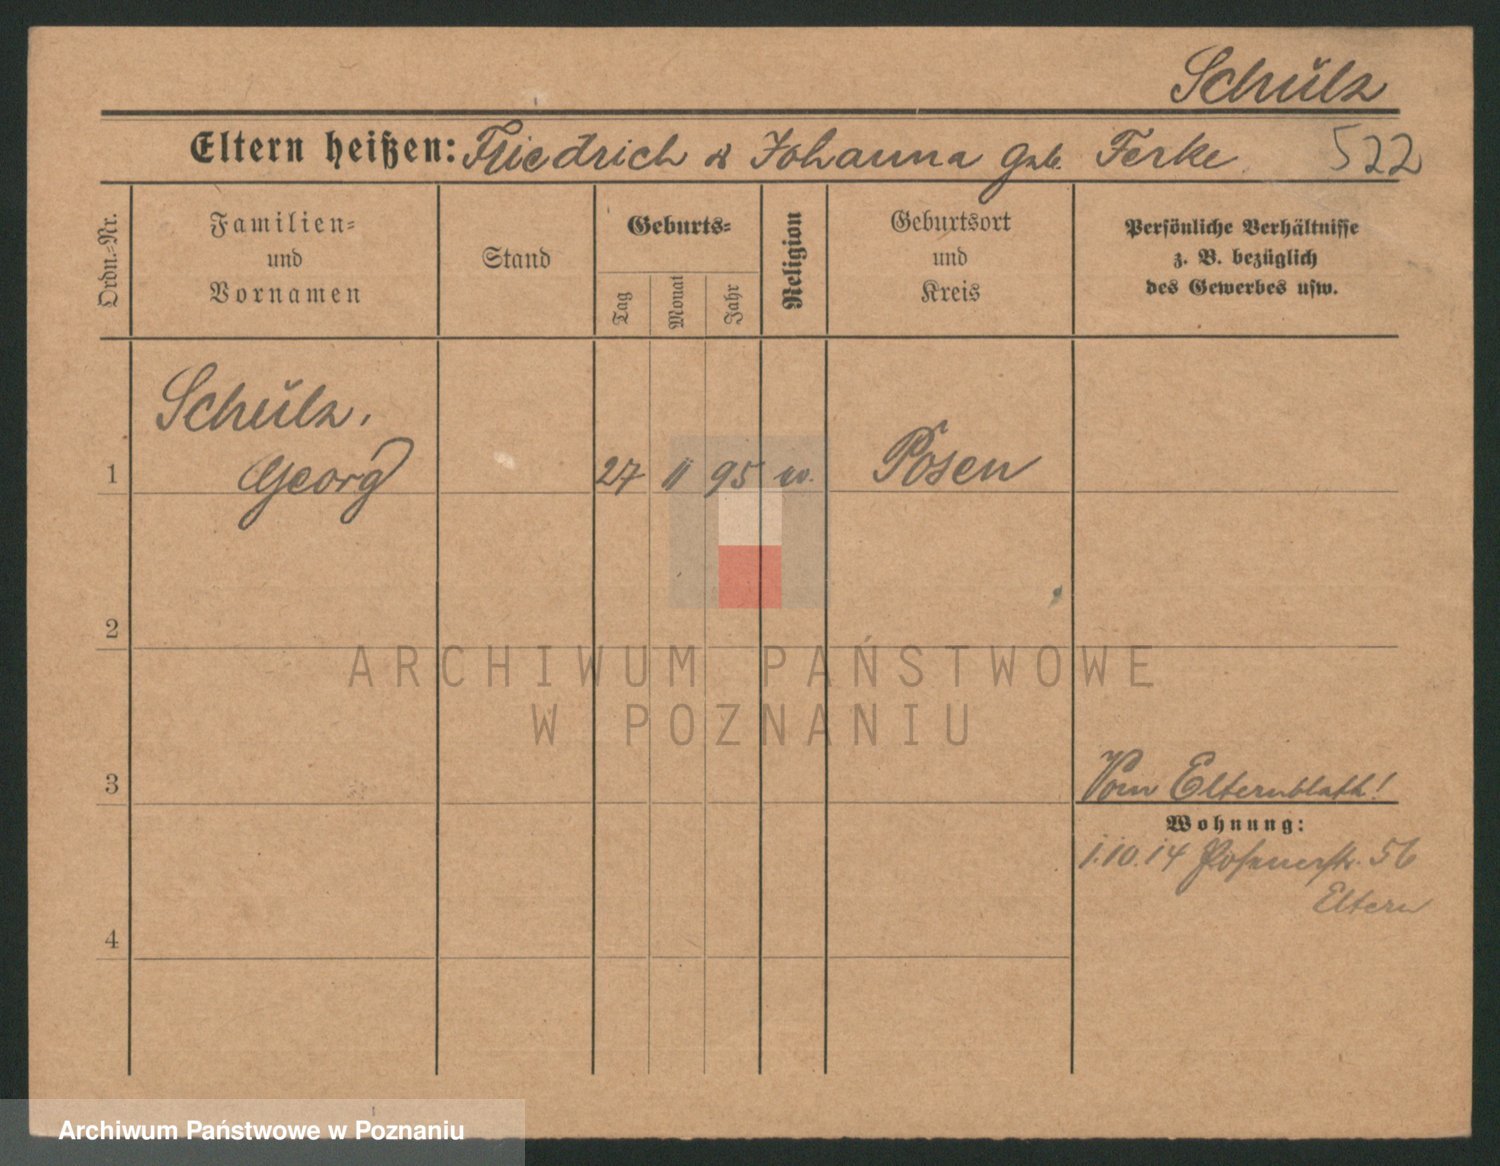 Schulz
Eltern heißen: Friedrich & Johanna geb. Ferke. 522
Ordn.-Nr.
Familien-
und
Vornamen
Stand
Geburts-
Tag
Monat
Jahr
Religion
Geburtsort
und
Kreis
Persönliche Verhältnisse
z. B. bezüglich
des Gewerbes usw.
Schulz,
1 Georg 27 11 95 Posen
2
ARCHIWUM PAŃSTWOWE
W POZNANIU
3 Vom Elternblatt!
Wohnung:
1.10.14 Posenerstr. 56
Eltern
4
Archiwum Państwowe w Poznaniu